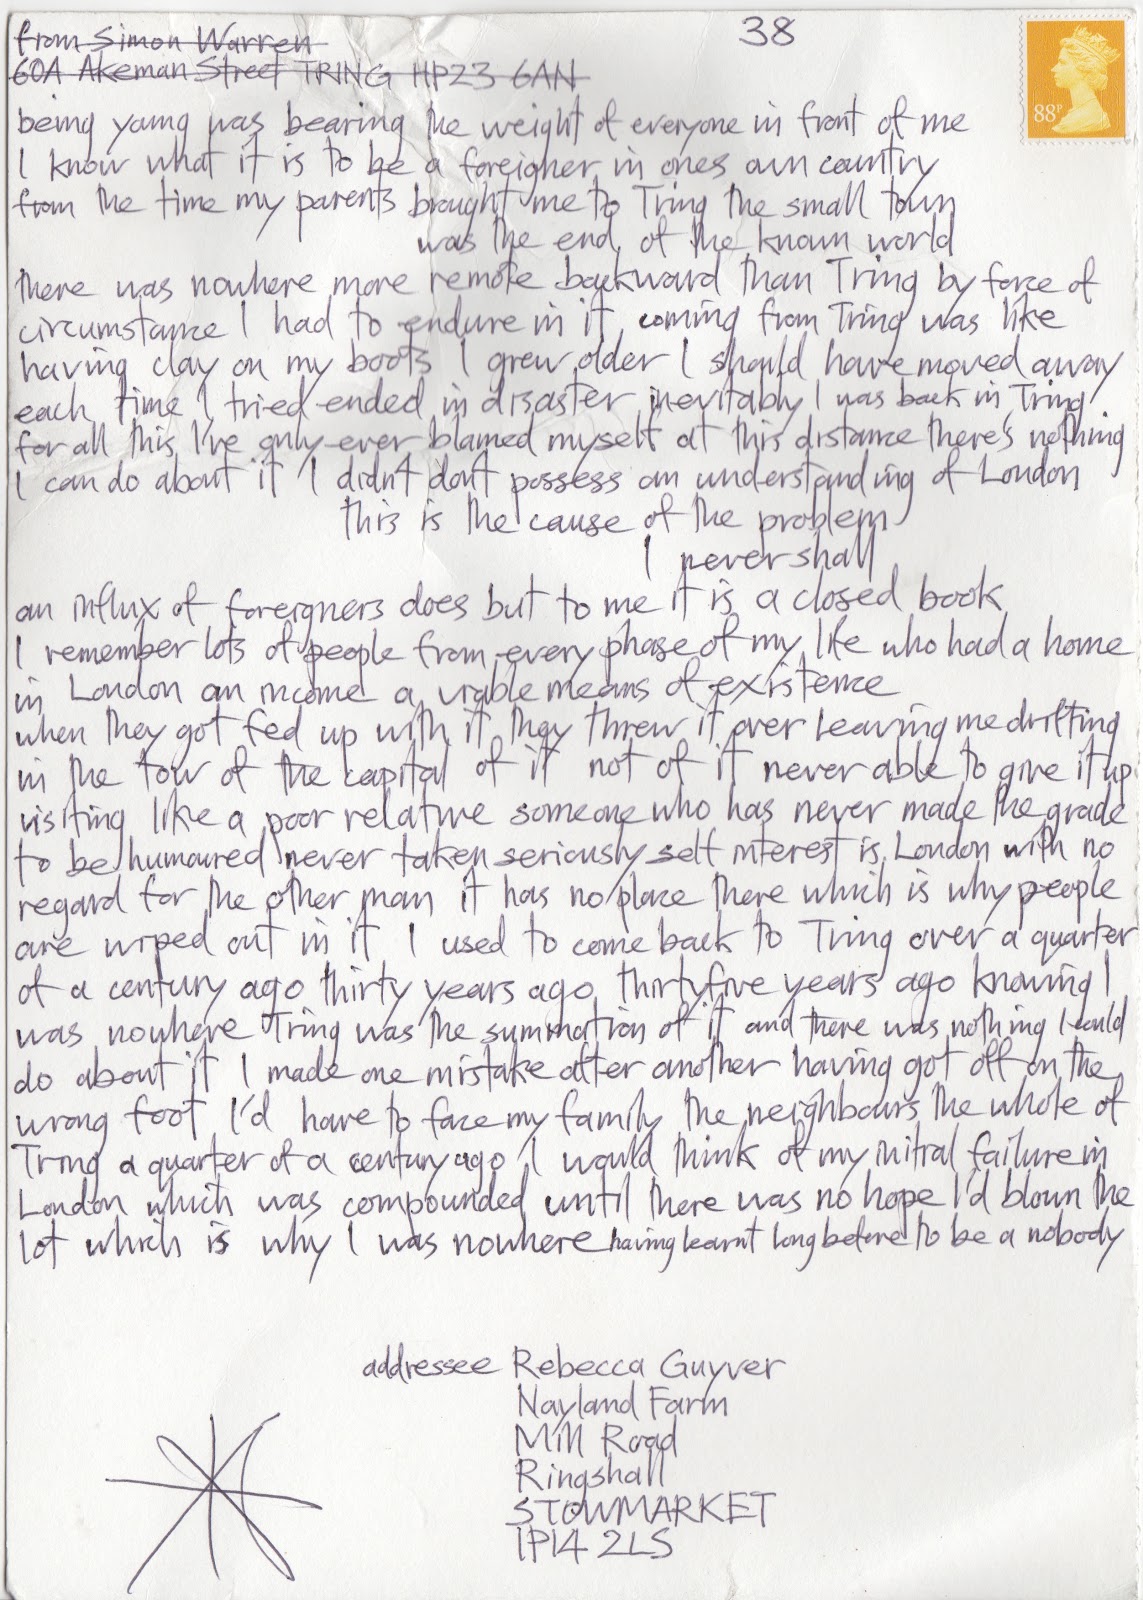 from Simon Warren
38
60A Akeman Street TRING HP23 6AN
88P
being young was bearing the weight of everyone in front of me
I know what it is to be a foreigner in ones own country
from the time my parents brought me to Tring the small town
was the end of the known world
there was nowhere more remote backward than Tring by force of
circumstance I had to endure in it coming from Tring was like
having clay on my boots I grew older I should have moved away
each time I tried ended in disaster inevitably I was back in Tring
for all this I've only ever blamed myself at this distance there's nothing
I can do about it I didn't don't possess an understanding of London
this is the cause of the problem
I never shall
an influx of foreigners does but to me it is a closed book
I remember lots of people from every phase of my life who had a home
in London an income a viable means of existence
when they got fed up with it they threw it over leaving me drifting
in the tow of the capital of it not of it never able to give it up
visiting like a poor relative someone who has never made the grade
to be humoured never taken seriously self interest is London with no
regard for the other man it has no place there which is why people
are wiped out in it I used to come back to Tring over a quarter
of a century ago thirty years ago thirtyfive years ago knowing I
was nowhere Tring was the summation of it and there was nothing I could
do about it I made one mistake after another having got off on the
wrong foot I'd have to face my family the neighbours the whole of
Tring a quarter of a century ago I would think of my initial failure in
London which was compounded until there was no hope I'd blown the
lot which is why I was nowhere having learnt long before to be a nobody
addressee Rebecca Guyver
Nayland Farm
Mill Road
Ringshall
STOWMARKET
IP14 2LS